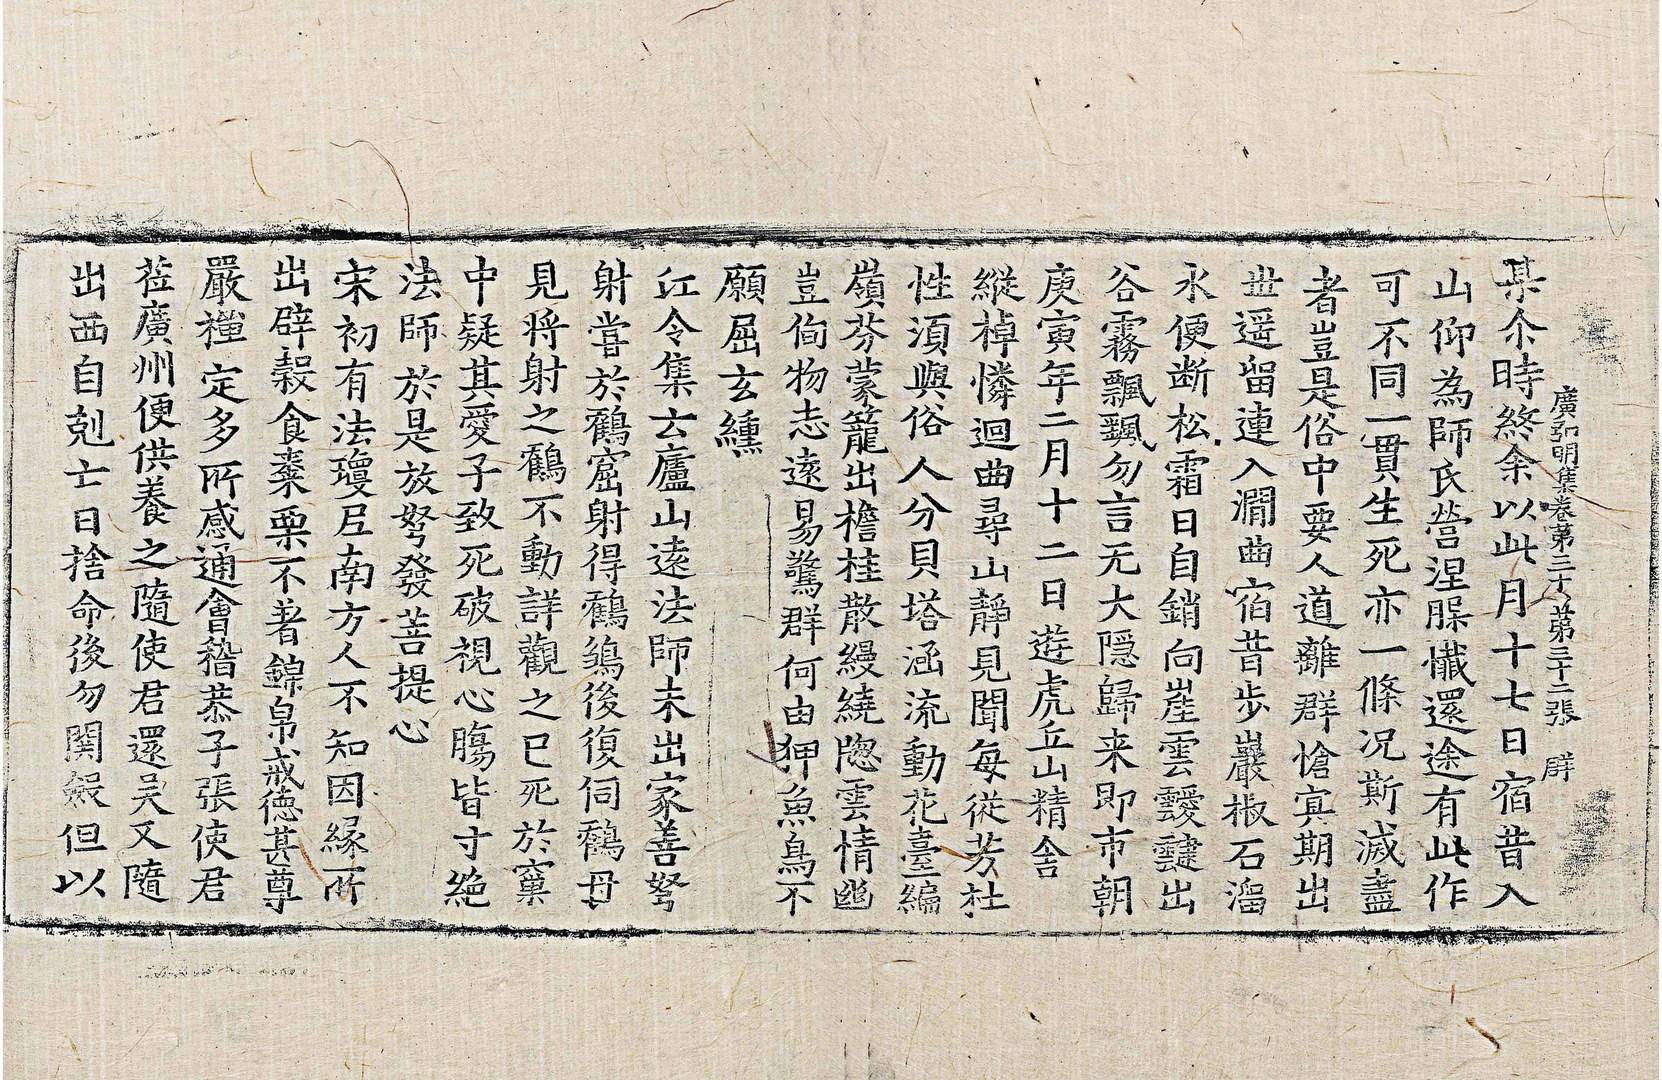 廣弘明集卷第三十　第三十二張　辟
某尒時終余以此月十七日宿昔入
山仰為師氏營涅槃懺還途有此作
可不同一貫生死亦一條况斯滅盡
者豈是俗中要人道離群愴寘期出
世遥留連入澗曲宿昔步巖椒石溜
永便断松霜日自銷向崖雲靉靆出
谷霧飄飖勿言无大隱歸来即市朝
庚寅年二月十二日遊虎丘山精舍
縱棹憐迴曲尋山靜見聞每從芳杜
性湏與俗人分貝塔涵流動花臺編
嶺芬蒙籠出檐桂散縵繞牕雲情幽
豈侚物志遠易驚群何由狎魚鳥不
願屈玄纁
江令集云廬山遠法師未出家善弩
射甞於鶴窟射得鶴鶵後復伺鶴母
見將射之鶴不動詳觀之已死於窠
中疑其愛子致死破視心膓皆寸絶
法師於是放弩發菩提心
宋初有法瓊尼南方人不知因緣所
出辟糓食棗栗不著錦帛戒德甚尊
嚴禪定多所感通會稽恭子張使君
莅廣州便供養之隨使君還吴又隨
出西自剋亡日捨命後勿関殯但以